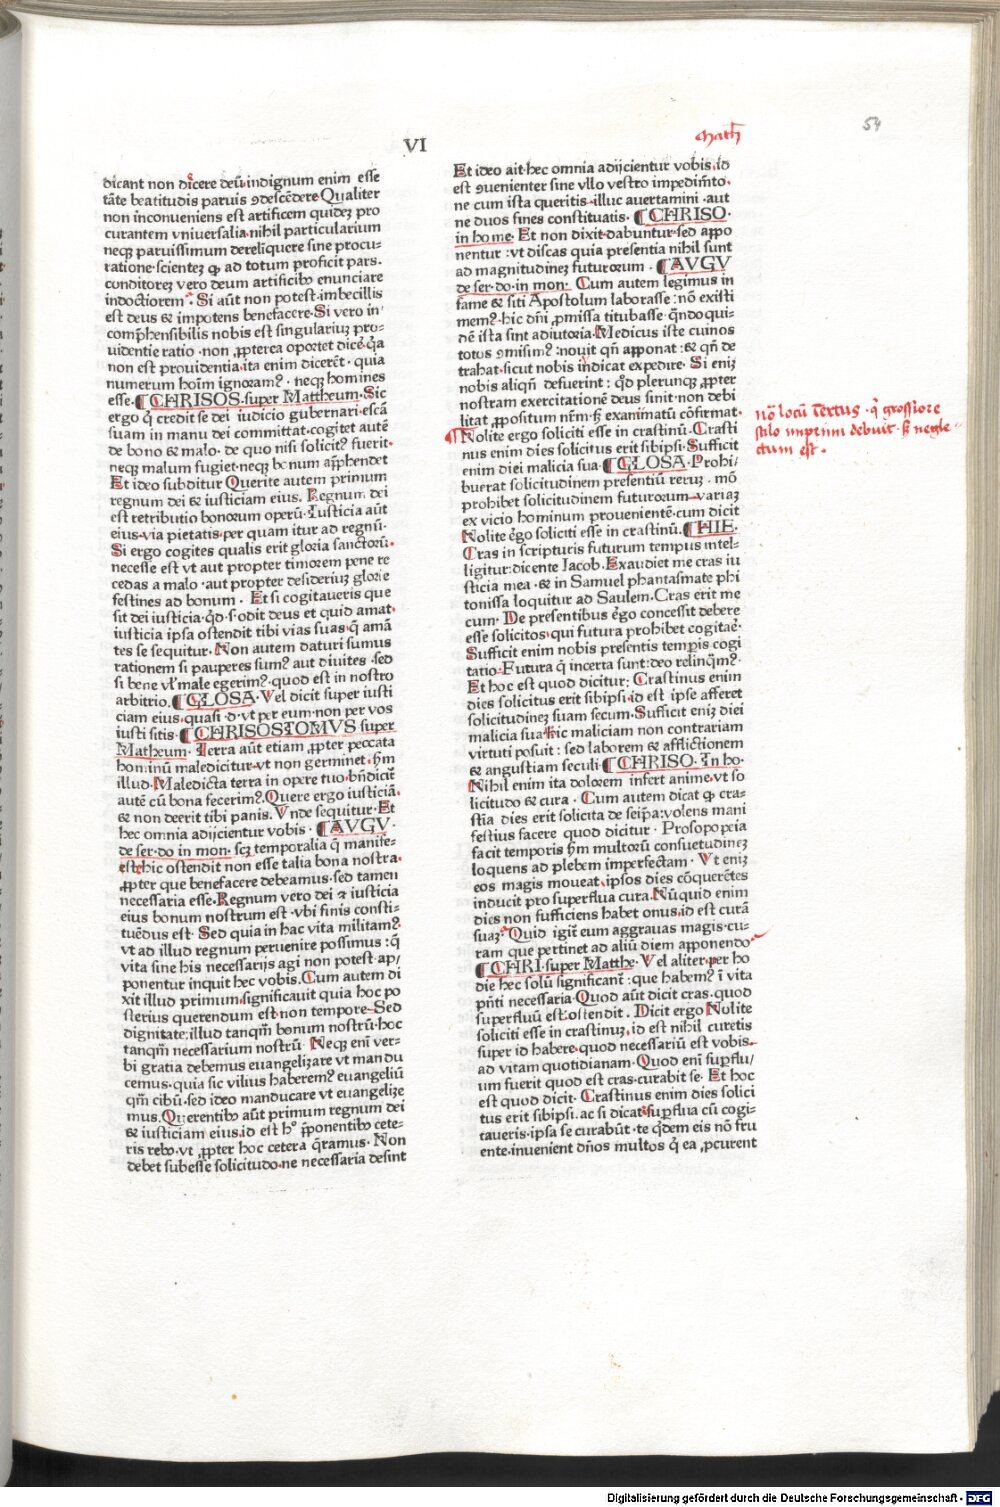 54
VI
Math
dicant non dicere deū indignum enim esse
tāte beatitudis paruis ꝯdescēdere Qualiter
non inconueniens est artificem quidez pro
curantem vniuersalia nihil particularium
neqꝫ paruissimum dereliquere sine procu-
ratione scientez ꝙ ad totum proficit pars.
conditorez vero deum artificibꝰ enunciare
indoctiorem. Si aūt non potest imbecillis
est deus & impotens benefacere Si vero in
comp̄hensibilis nobis est singulariuz pro-
uidentie ratio non ꝓpterea oportet dicē q̄a
non est prouidentia ita enim dicerēt quia
numerum hoīm ignoramꝰ neqꝫ homines
esse. CHRISOS super Mattheum Sic
ergo q̄ credit se dei iudicio gubernari escā
suam in manu dei committat cogitet autē
de bono & malo de quo nisi solicitꝰ fuerit
neqꝫ malum fugiet neqꝫ bonum app̄hendet
Et ideo subditur Querite autem primum
regnum dei & iusticiam eius. Regnum dei
est retributio bonorum operū Iusticia aūt
eius via pietatis per quam itur ad regnū
Si ergo cogites qualis erit gloria sanctorū
necesse est vt aut propter timorem pene re
cedas a malo aut propter desideriuz glorie
festines ad bonum. Et si cogitaueris que
sit dei iusticia qd s odit deus et quid amat
iusticia ipsa ostendit tibi vias suas q̄ amā
tes se sequitur. Non autem daturi sumus
rationem si pauperes sumꝰ aut diuites sed
si bene vl male egerimꝰ quod est in nostro
arbitrio. GLOSA Vel dicit super iusti
ciam eius quasi d vt per eum non per vos
iusti sitis CHRISOSTOMVS super
Matheum Terra aūt etiam ꝓpter peccata
hominū maledicitur vt non germinet hm
illud Maledicta terra in opere tuo bn̄dicit
autē cū bona fecerimꝰ Quere ergo iusticiā
& non deerit tibi panis Vnde sequitur Et
hec omnia adijcientur vobis AVGV
de ser do in mon scz temporalia q̄ manife-
este hic ostendit non esse talia bona nostra
ꝓpter que benefacere debeamus sed tamen
necessaria esse Regnum vero dei & iusticia
eius bonum nostrum est vbi finis consti-
tuēdus est Sed quia in hac vita militamꝰ
vt ad illud regnum peruenire possimus q̄
vita sine his necessarijs agi non potest ap
ponentur inquit hec vobis Cum autem di
xit illud primum significauit quia hoc po
sterius querendum est non tempore Sed
dignitate illud tanqm̄ bonum nostrū hoc
tanqm̄ necessarium nostrū Neqꝫ enī ver-
bi gratia debemus euangelizare vt mandu
cemus quia sic vilius haberemꝰ euangeliū
qm̄ cibū sed ideo manducare vt euangelize
mus Querentibꝰ aūt primum regnum dei
& iusticiam eius id est hꝰ p̄ponentibꝰ cete-
ris rebꝰ vt ꝓpter hoc cetera q̄ramus Non
debet subesse solicitudo ne necessaria desint
Et ideo ait hec omnia adijcientur vobis id
est ꝯuenienter sine vllo vestro impedimto
ne cum ista queritis illuc auertamini aut
ne duos fines constituatis CHRISO
in home Et non dixit dabuntur sed appo
nentur vt discas quia presentia nihil sunt
ad magnitudinez futurorum AVGV
de ser do in mon Cum autem legimus in
fame & siti Apostolum laborasse nō existi
memꝰ hic dn̄i ꝓmissa titubasse qn̄do qui-
dē ista sint adiutoria Medicus iste cui nos
totos ꝯmisimꝰ nouit qn̄ apponat & qn̄ de
trahat sicut nobis indicat expedire Si eniz
nobis aliqn̄ defuerint qd plerunqꝫ ꝓpter
nostram exercitationē deus sinit non debi
litat ꝓpositum nr̄m sꝫ examinatū cōfirmat
Nolite ergo soliciti esse in crastinū Crasti
nus enim dies solicitus erit sibi ipsi Sufficit
enim diei malicia sua GLOSA Prohi
buerat solicitudinem presentiū rerum mō
prohibet solicitudinem futurorum variaz
ex vicio hominum prouenientē cum dicit
Nolite ergo soliciti esse in crastinū HIE
Cras in scripturis futurum tempus intel-
ligitur dicente Iacob Exaudiet me cras iu
sticia mea & in Samuel phantasmate phi
tonissa loquitur ad Saulem Cras erit me
cum De presentibus ergo concessit debere
esse solicitos qui futura prohibet cogitare
Sufficit enim nobis presentis temporis cogi
tatio Futura q̄ incerta sunt deo relinqmꝰ
Et hoc est quod dicitur Crastinus enim
dies solicitus erit sibi ipsi id est ipse afferet
solicitudinez suam secum Sufficit eniz diei
malicia sua hic maliciam non contrariam
virtuti posuit sed laborem & afflictionem
& angustiam seculi CHRISO In ho
Nihil enim ita dolorem infert anime vt so
licitudo & cura Cum autem dicat ꝙ cra-
stina dies erit solicita de seipa volens mani
festius facere quod dicitur Prosopopeia
facit temporis hm multorū consuetudinez
loquens ad plebem imperfectam Vt eniz
eos magis moueat ipsos dies cōquerētes
inducit pro superflua cura Nūquid enim
dies non sufficiens habet onus id est curā
suaz Quid igit eum aggrauas magis cu-
ram que pertinet ad aliū diem apponendo
CHRI super Matthe Vel aliter per ho
die hec solū significant que habemꝰ ī vita
pn̄ti necessaria Quod aūt dicit cras quod
superfluū est ostendit Dicit ergo Nolite
soliciti esse in crastinuz id est nihil curetis
super id habere quod necessariū est vobis
ad vitam quotidianam Quod enī supflu
um fuerit quod est cras curabit se Et hoc
est quod dicit Crastinus enim dies solici
tus erit sibi ipsi ac si dicat supflua cū cogi-
taueris ipsa se curabūt te qdem eis nō fru
ente inuenient dn̄os multos q̄ ea ꝓcurent
nō locū Textus q̄ grossiore
stilo imprimi debuit sꝫ negle-
ctum est.
Digitalisierung gefördert durch die Deutsche Forschungsgemeinschaft - DFG